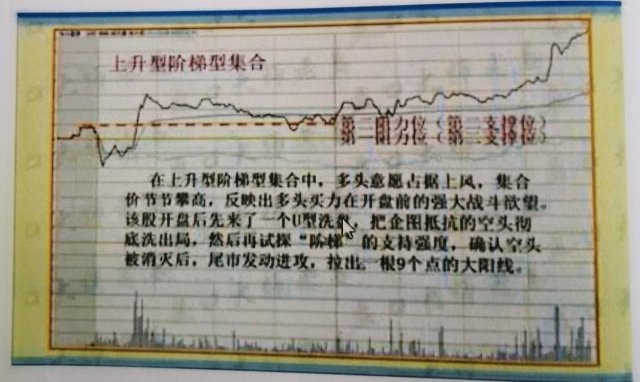 上升型阶梯型集合
第二阻力位（第二支撑位）
在上升型阶梯型集合中，多头意愿占据上风，集合
价节节攀高，反映出多头买力在开盘前的强大战斗欲望。
该股开盘后先来了一个U型洗盘，把企图抵抗的空头彻
底洗出局，然后再试探“阶梯”的支持强度，确认空头
被消灭后，尾市发动进攻，拉出一根9个点的大阳线。